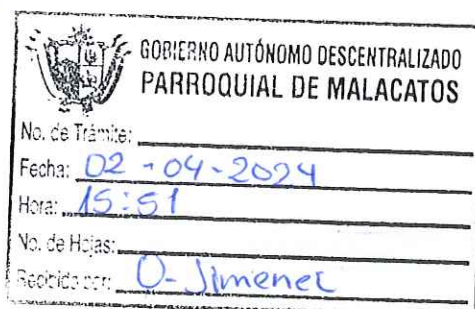 GOBIERNO AUTÓNOMO DESCENTRALIZADO
PARROQUIAL DE MALACATOS
No. de Trámite:
Fecha: 02-04-2024
Hora: 15:51
No. de Hojas:
Recibido por: O- Jimenez